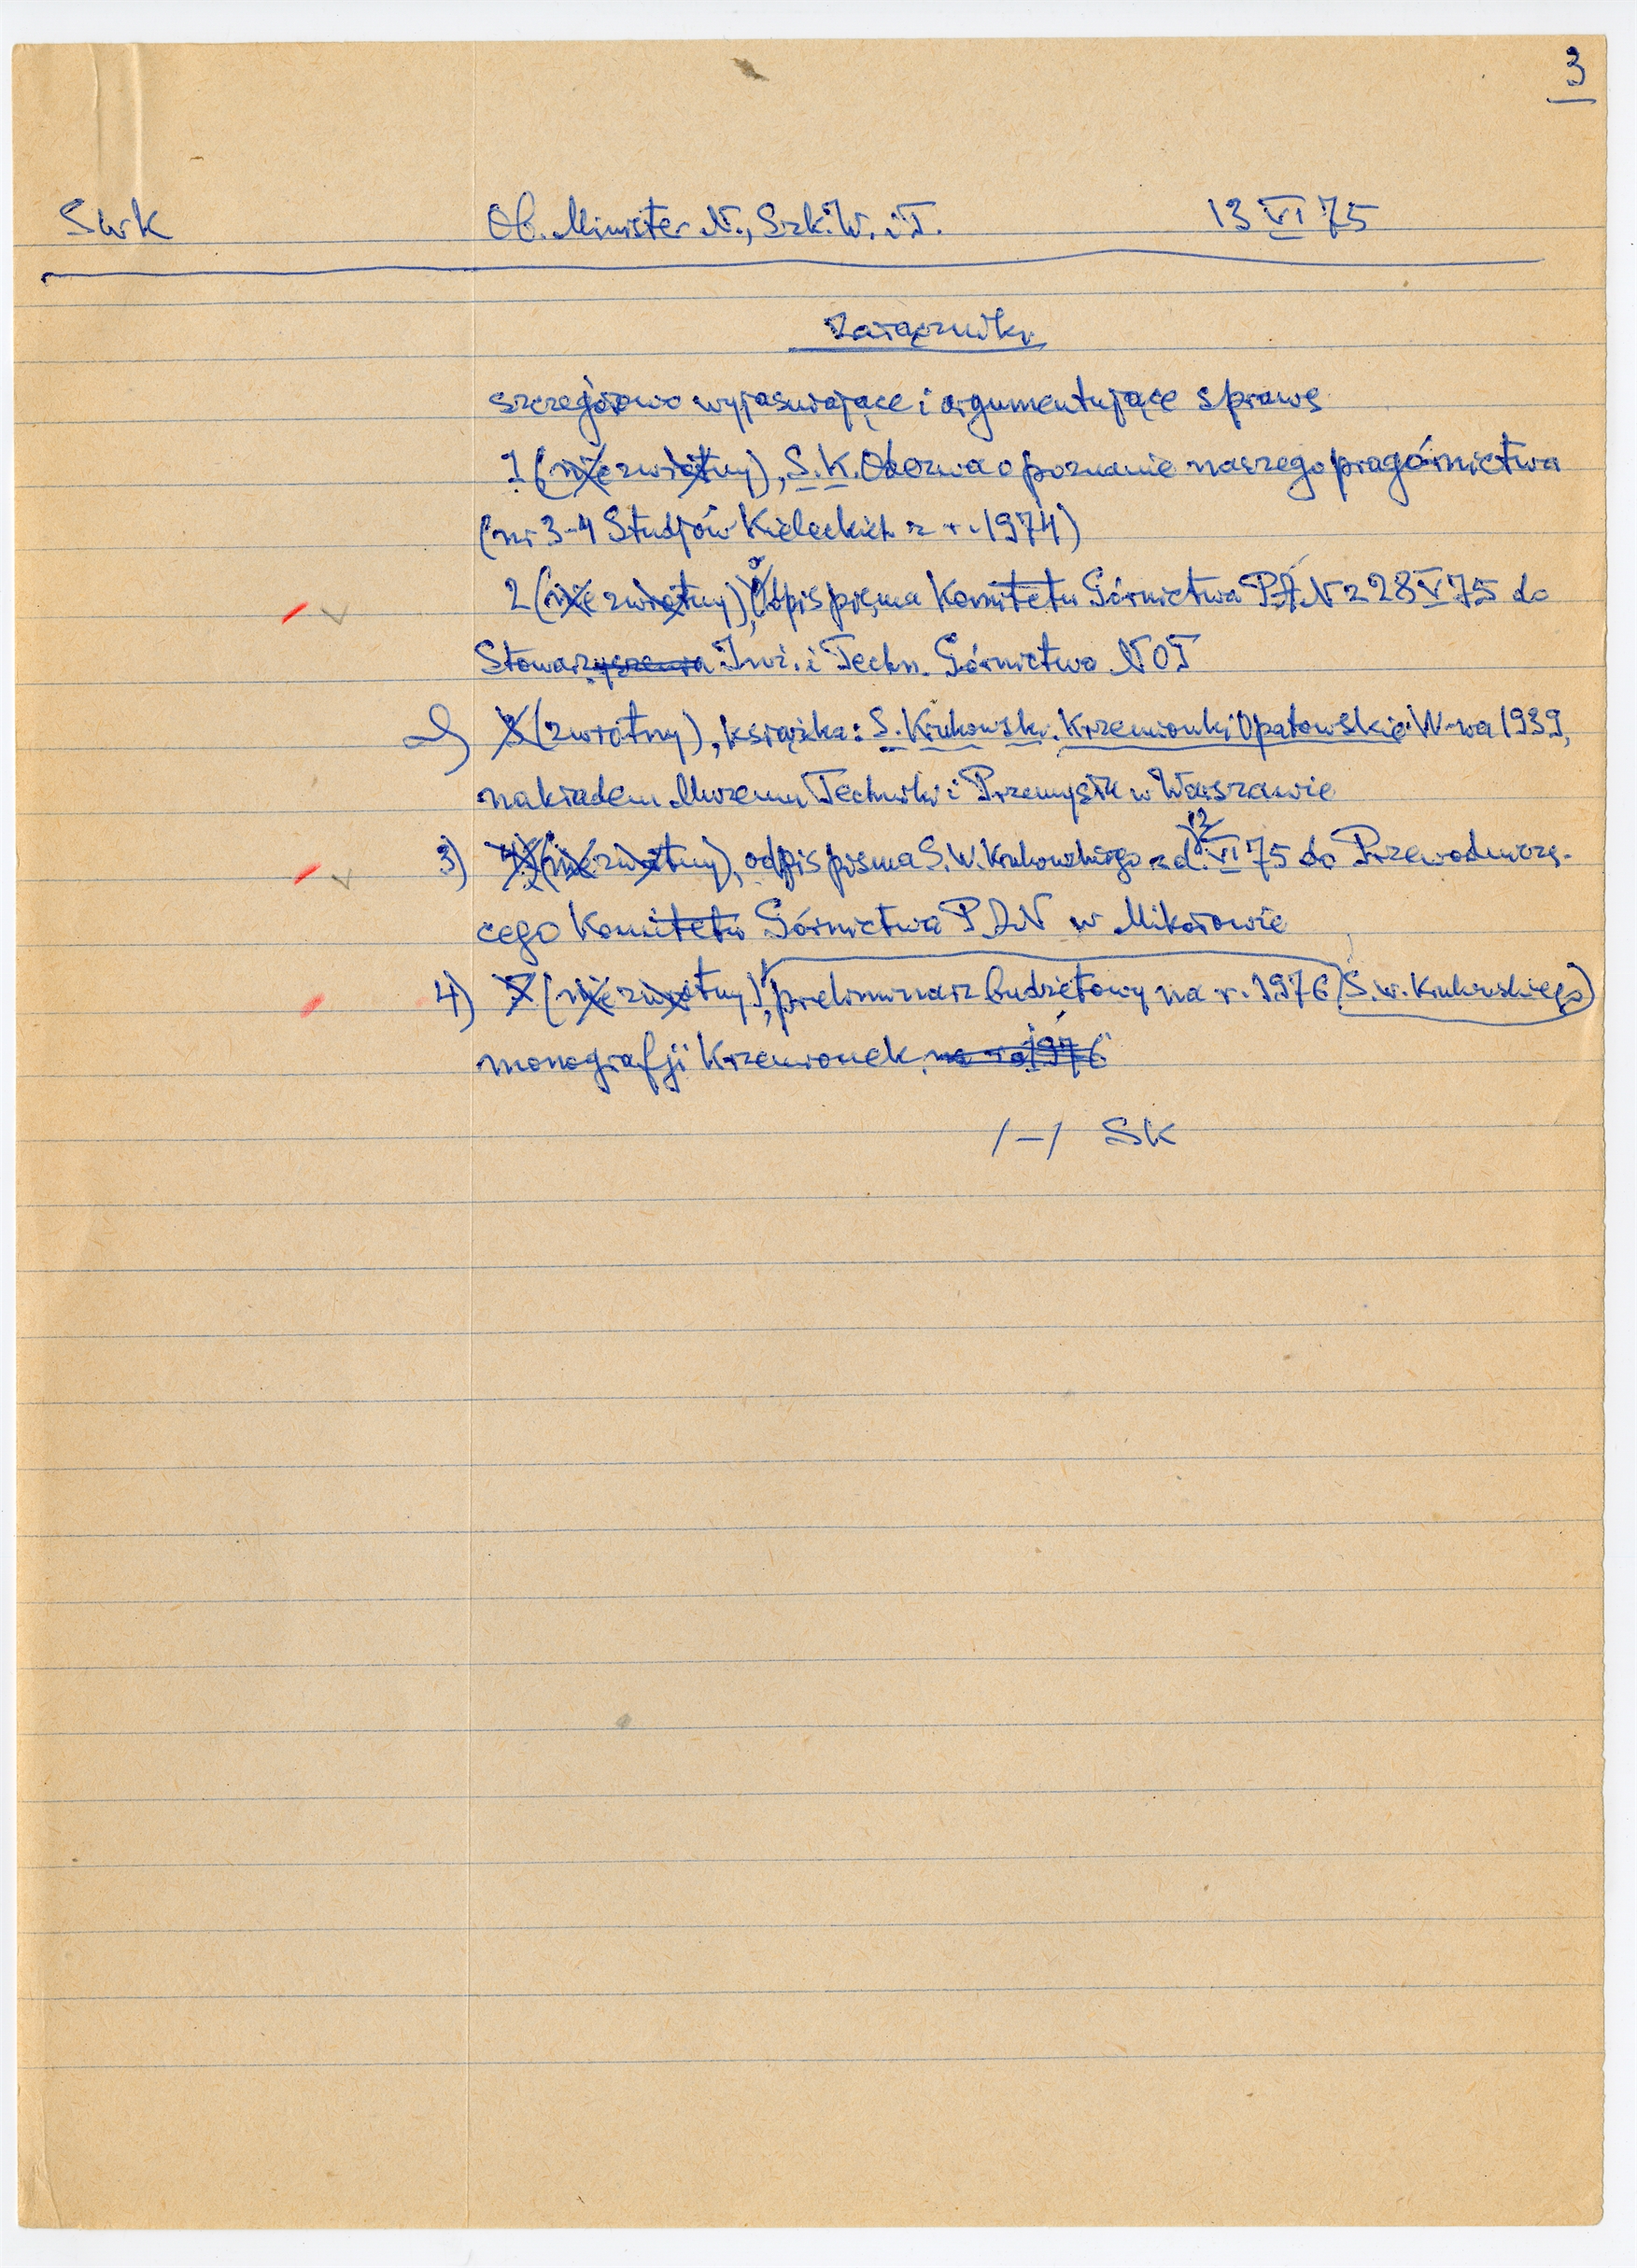 3
SWK Ob. Minister N., Szk. W. i T. 13 VI 75
Załączniki
szczegółowo wyjaśniające i argumentujące sprawę
1 (niezwrotny), S. K. Odezwa o poznanie naszego pragórnictwa
(nr 3-4 Studjów Kieleckich z r. 1974)
2 (niezwrotny), odpis pisma Komitetu Górnictwa PAN z 28 V 75 do
Stowarzyszenia Inż. i Techn. Górnictwa NOT
2) 3 (zwrotny), książka: S. Krukowski. Krzemionki Opatowskie. W-wa 1939,
nakładem Muzeum Techniki i Przemysłu w Warszawie
3) 4 (niezwrotny), odpis pisma S. W. Krukowskiego z d. 12 VI 75 do Przewodniczą-
cego Komitetu Górnictwa PAN w Mikołowie
4) 5 (niezwrotny), preliminarz budżetowy na r. 1976 (S. W. Krukowskiego)
monografji Krzemionek na r. 1976
/-/ SK